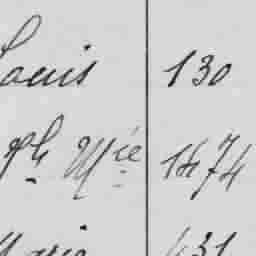 Louis 130
ph Mie 1474
Marie 431